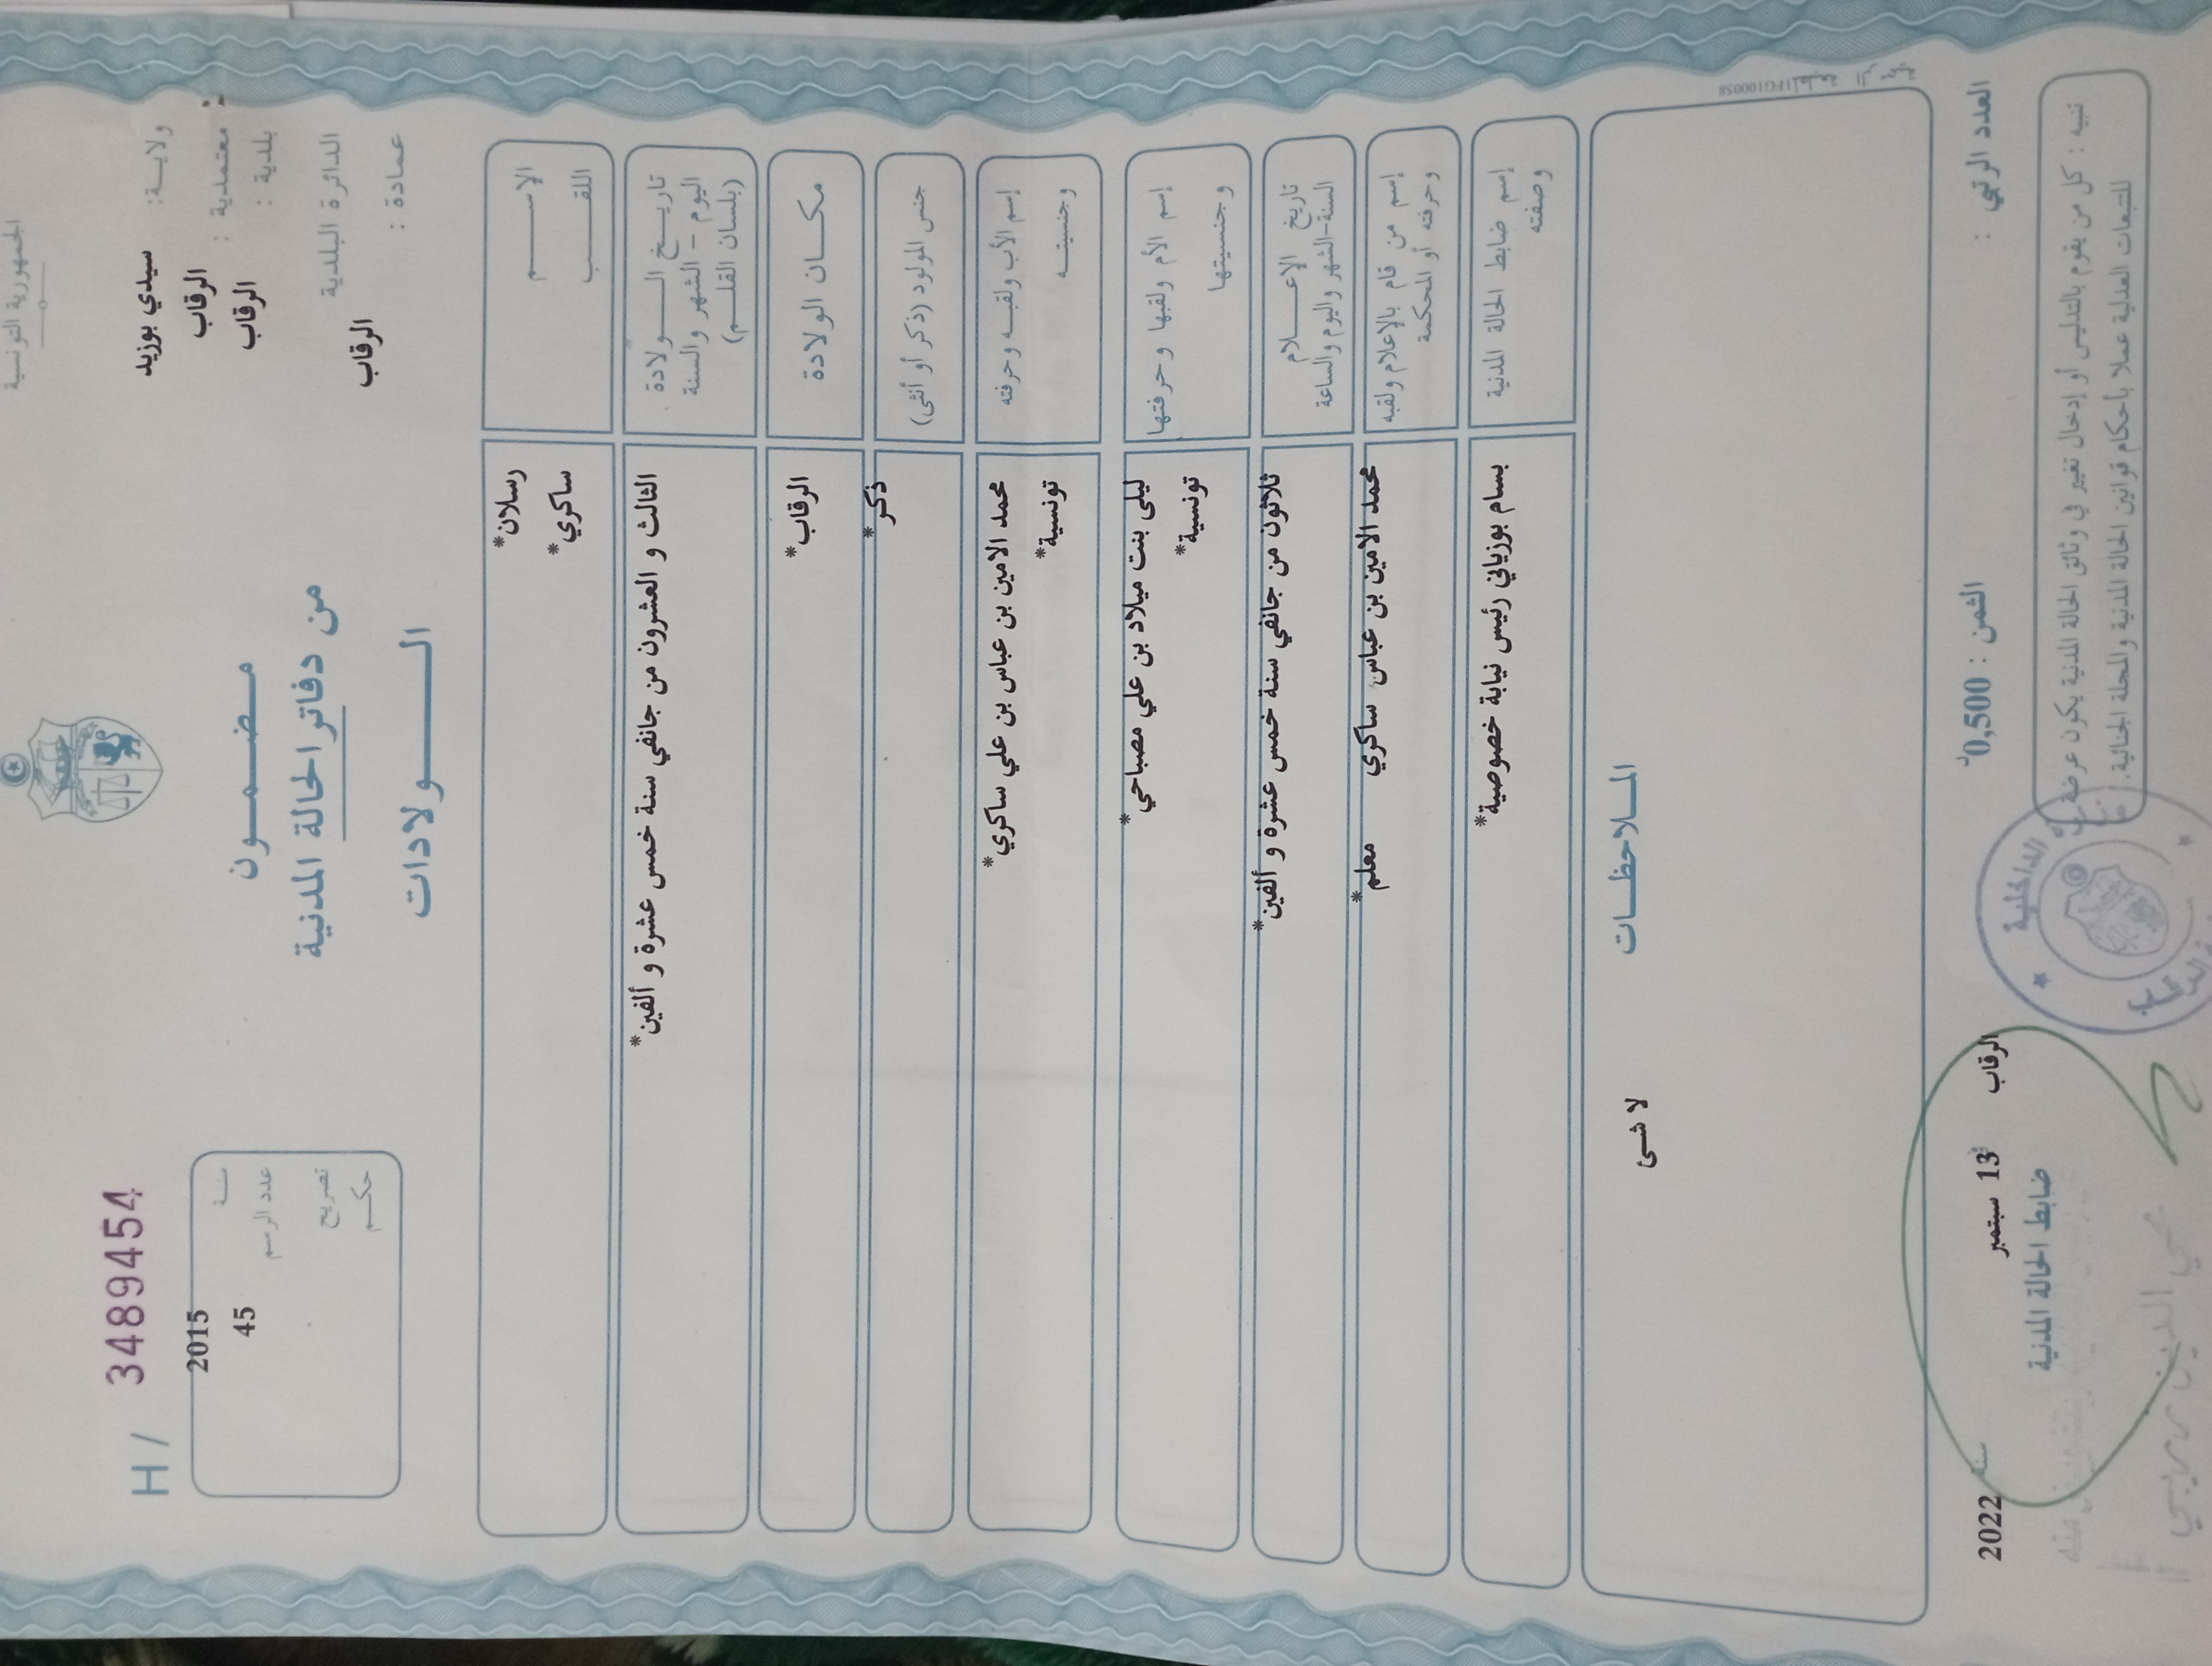 الجمهورية التونسية
ولاية: سيدي بوزيد
معتمدية : الرقاب
بلدية : الرقاب
الدائرة البلدية
الرقاب
عمادة :
مضمون
من دفاتر الحالة المدنية
الولادات
H / 3489454
سنة 2015
عدد الرسم 45
تصريح
حكم
الإسم رسلان*
اللقب ساكري*
تاريخ الولادة
اليوم - الشهر والسنة
(بلسان القلم)
الثالث و العشرون من جانفي سنة خمس عشرة و ألفين*
مكان الولادة الرقاب*
جنس المولود (ذكر أو أنثى) ذكر*
إسم الأب ولقبه وحرفته محمد الامين بن عباس بن علي ساكري*
وجنسيته تونسية*
إسم الأم ولقبها وحرفتها ليلى بنت ميلاد بن علي مصباحي*
وجنسيتها تونسية*
تاريخ الإعلام
السنة-الشهر واليوم والساعة
ثلاثون من جانفي سنة خمس عشرة و ألفين*
إسم من قام بالإعلام ولقبه
وحرفته أو المحكمة
محمد الامين بن عباس ساكري معلم*
إسم ضابط الحالة المدنية
وصفته
بسام بوزياني رئيس نيابة خصوصية*
الملاحظات
لا شئ
IPG100058
العدد الرتبي :
الثمن : 0,500د
الرقاب 13 سبتمبر سنة 2022
ضابط الحالة المدنية
تنبيه : كل من يقوم بالتدليس أو إدخال تغيير في وثائق الحالة المدنية يكون عرضة
للتتبعات العدلية عملا بأحكام قوانين الحالة المدنية والمجلة الجنائية.
الداخلية
الرقاب